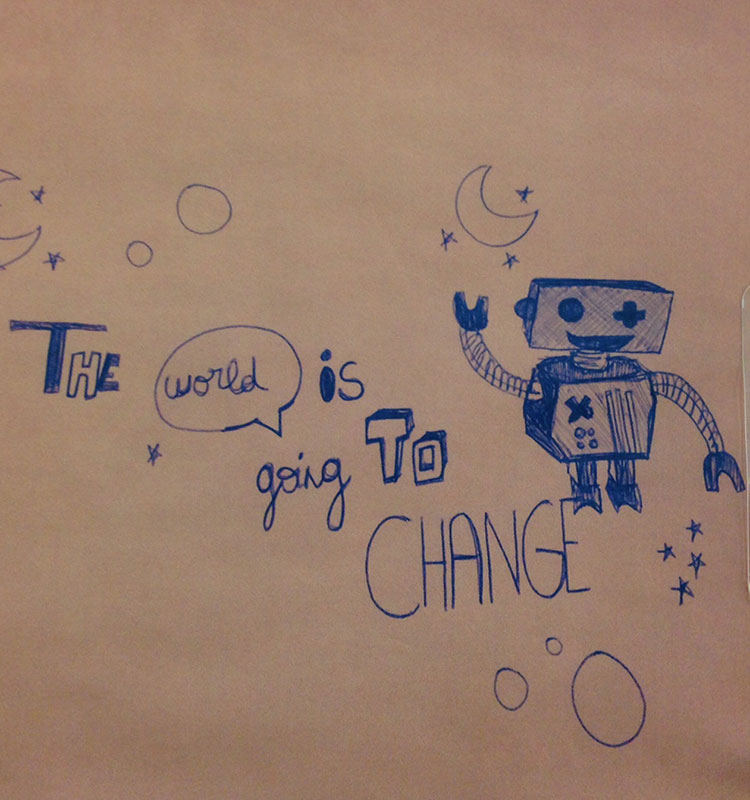 THE world is
going TO
CHANGE